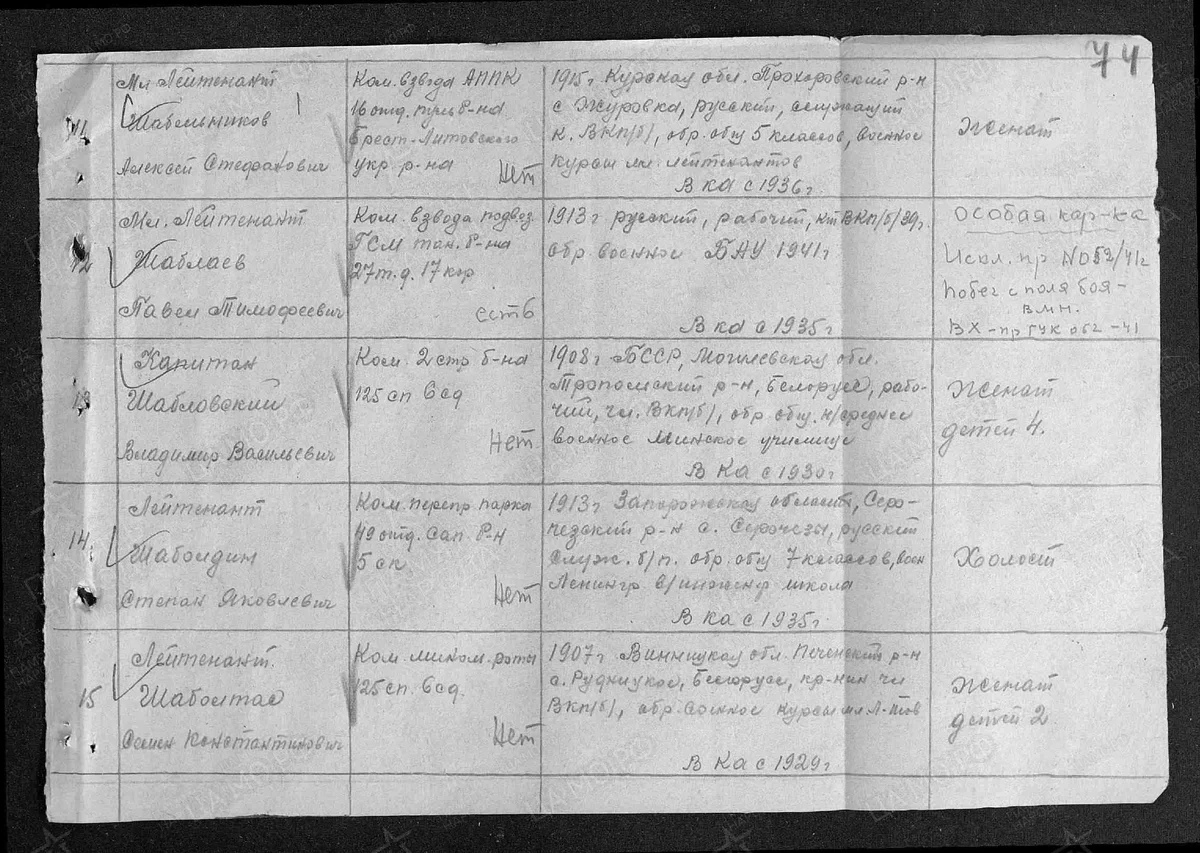 74
11
Мл Лейтенант
Шабельников
Алексей Стефанович
Ком. взвода АППК
16 отд. пульб-на
Брест-Литовского
укр. р-на
Нет
1915г Курская обл. Прохоровский р-н
с Журовка, русский, служащий
к. ВКП/б/, обр. общ 5 классов, военное
курсы мл. лейтенантов
В ка с 1936г.
Женат
12
Мл. Лейтенант
Шаблаев
Павел Тимофеевич
Ком. взвода подвез.
ГСМ тан. б-на
27т.д. 17 кор
есть
1913г русский, рабочий, кт ВКП/б/39г.
обр военное БАУ 1941г
В ка с 1935г
Особая кар-ка
Искл. пр №052/41г
Побег с поля боя-
в м.н.
ВХ-пр ГУК 062-41
13
Капитан
Шабловский
Владимир Васильевич
Ком. 2 стр б-на
125 сп 6 сд
Нет
1908г БССР, Могилевская обл.
р-н, Белорусс, рабо-
чий, чл. ВКП(б), обр общ. н/среднее
военное Минское училище
В Ка с 1930г
Женат
детей 4.
14.
Лейтенант
Шаболдин
Степан Яковлевич
Ком. перепр парка
49 отд. сап. б-н
5 ск
Нет
1913г Запорожская область, Серо-
р-н с. Серогезы, русский
служ. б/п. обр. общ 7 классов, воен
Ленингр в/инженер школа
В ка с 1935г.
Холост
15
Лейтенант.
Шаболтас
Семен Константинович
Ком. мином. роты
125 сп. 6 сд.
Нет
1907г Винницкая обл. р-н
с. Рудницкое, Белорусс, кр-нин чл
ВКП(б), обр. военное курсы мл Л-тов
В Ка с 1929г
Женат
детей 2